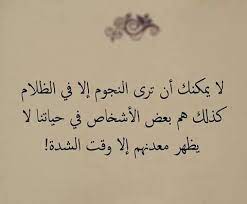 لا يمكنك أن ترى النجوم إلا في الظلام
كذلك هم بعض الأشخاص في حياتنا لا
يظهر معدنهم إلا وقت الشدة!